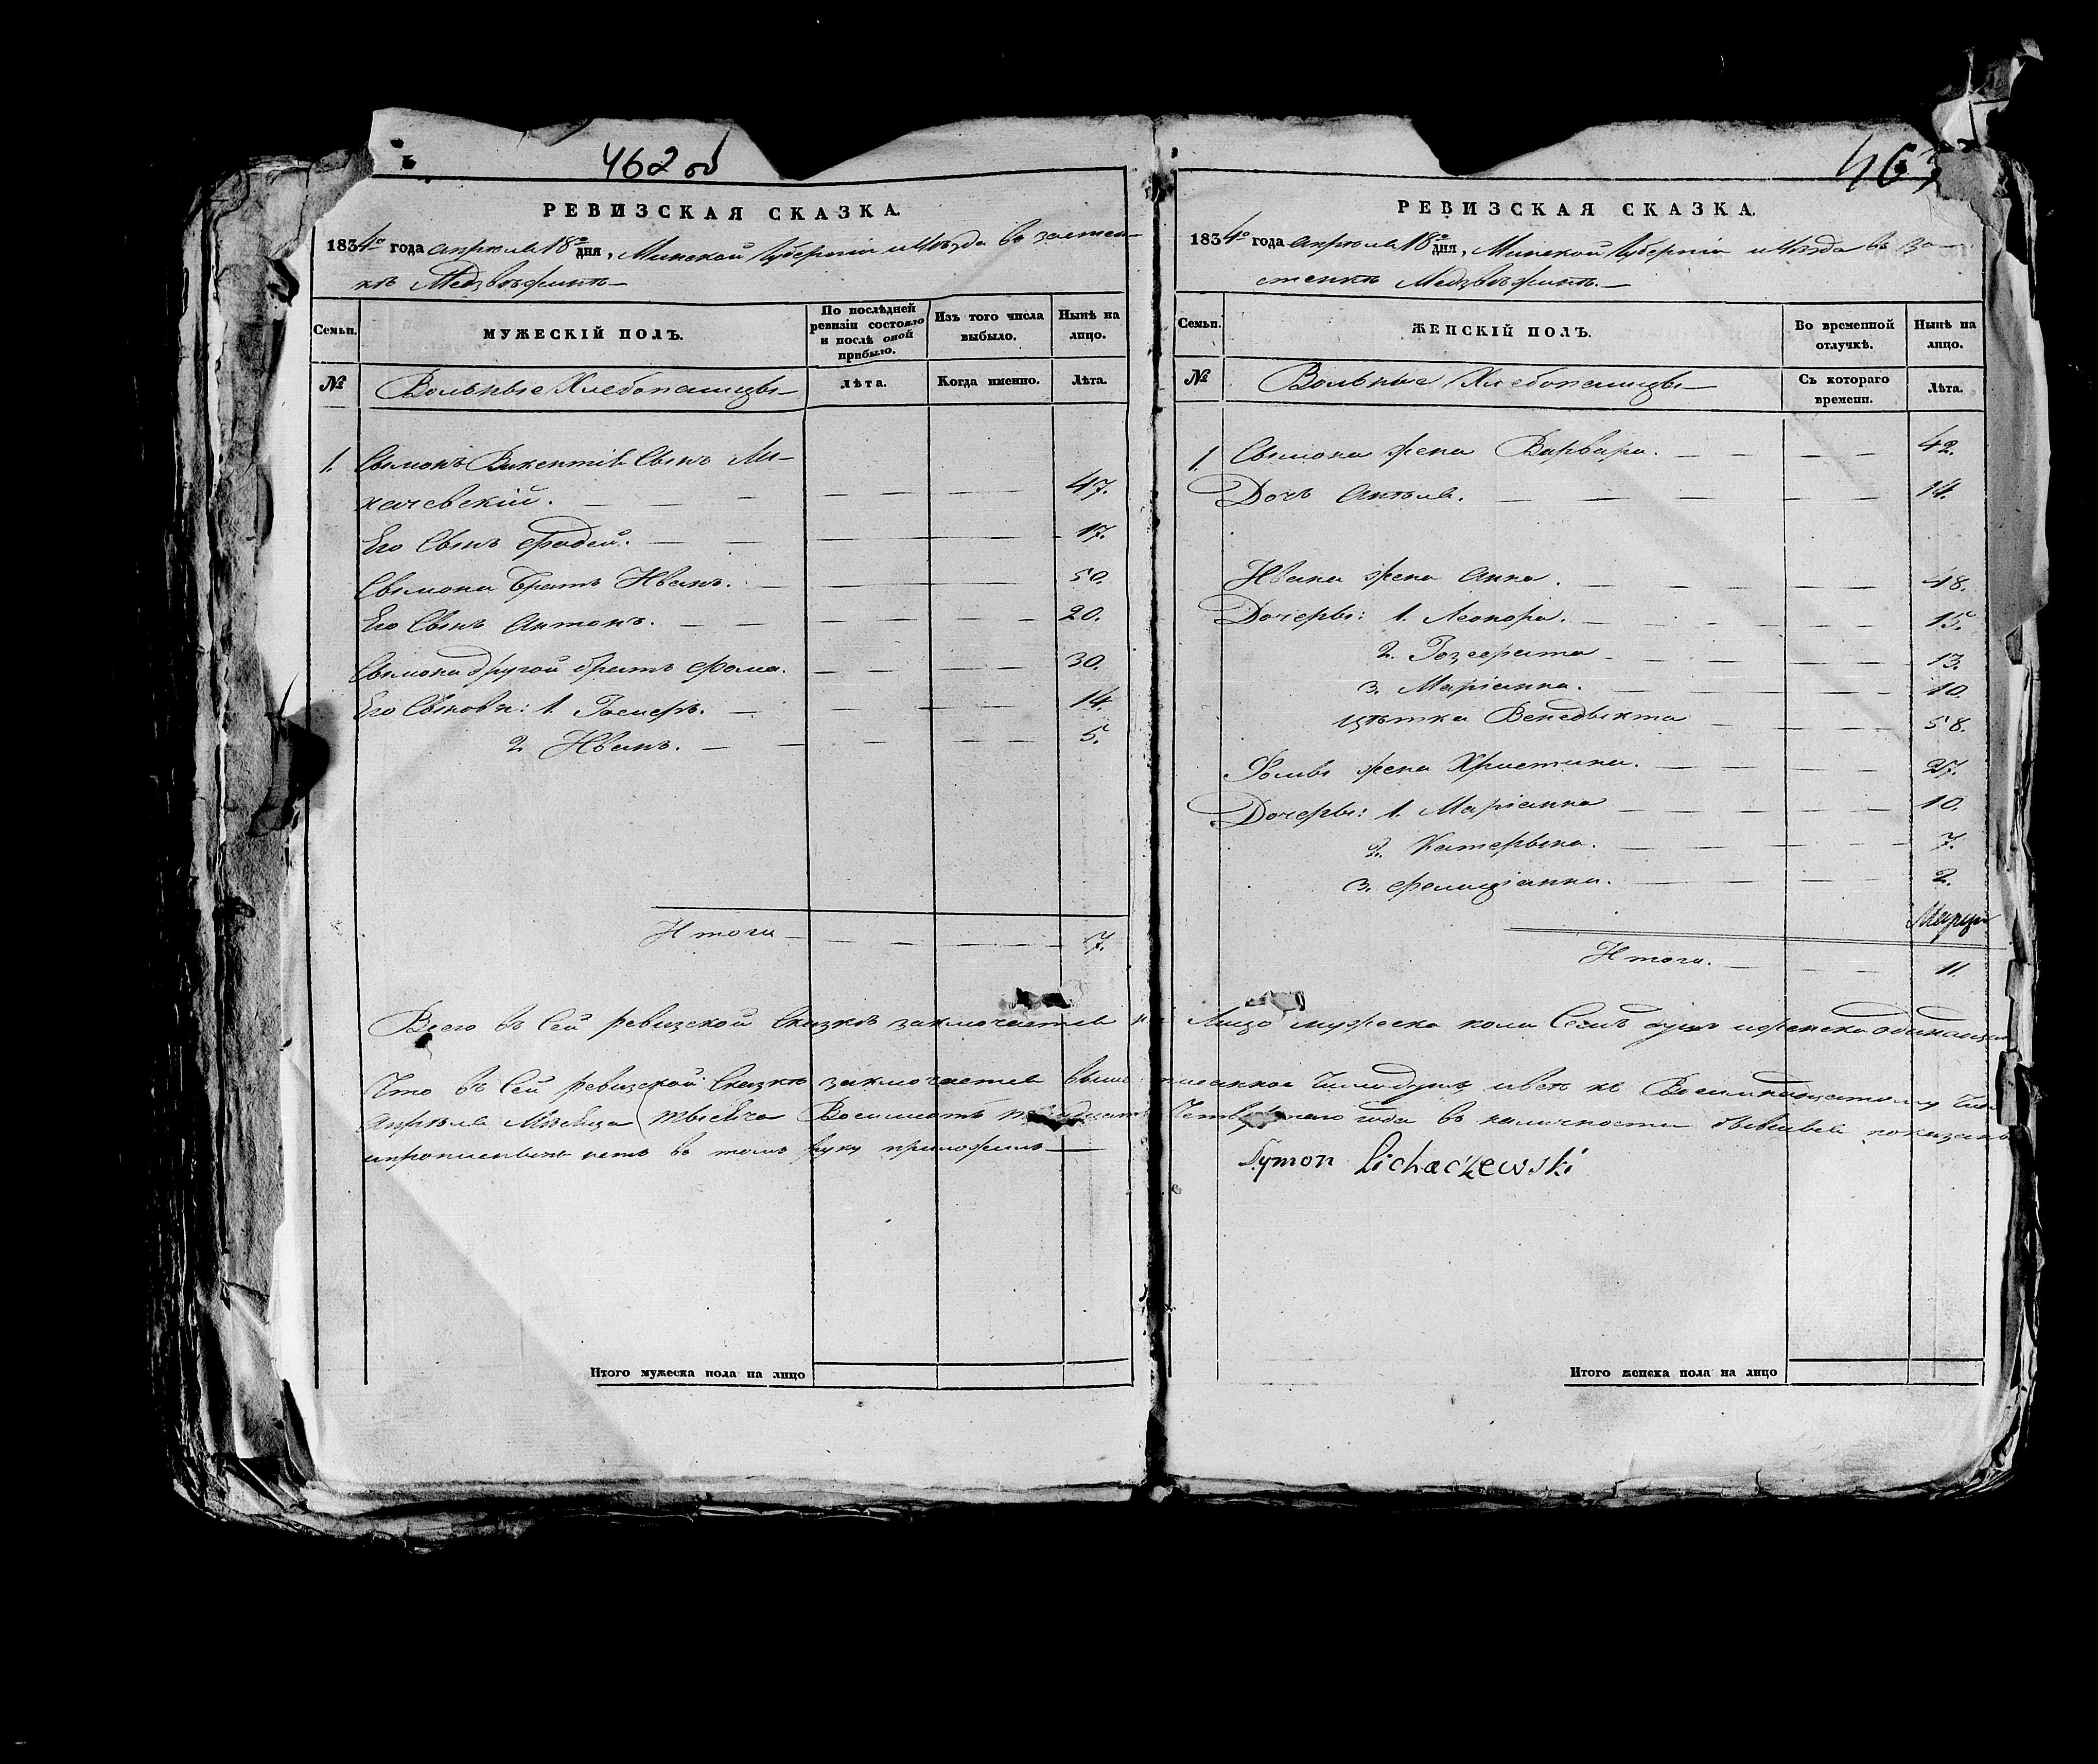 462 об
РЕВИЗСКАЯ СКАЗКА.
1834го года апреля 18го дня, Минской Губерніи и Уѣзда въ застен-
кѣ Медзвѣжинѣ
Семьи.
МУЖЕСКІЙ ПОЛЪ.
По послѣдней ревизіи состояло и послѣ оной прибыло.
Изъ того числа выбыло.
Нынѣ на лицо.
№
Вольные Хлебопашцы
Лѣта.
Когда именно.
Лѣта.
1. Сымонъ Викентія Сынъ Ли-
хачевскій. 47.
Его Сынъ Фадей. 17.
Сымона братъ Иванъ. 50.
Его Сынъ Антонъ. 20.
Сымона другой братъ Фома. 30.
Его Сыновъя: 1. 14.
2. Иванъ. 5.
Итого 7.
Итого мужеска пола на лицо
463
РЕВИЗСКАЯ СКАЗКА.
1834го года апреля 18го дня, Минской Губерніи и Уѣзда въ за-
стенкѣ Медзвѣжинѣ.
Семьи.
ЖЕНСКІЙ ПОЛЪ.
Во временной отлучкѣ.
Нынѣ на лицо.
№
Вольные Хлебопашцы
Съ котораго времени.
Лѣта.
1. Сымона жена Варвара. 42.
Дочъ Анѣля. 14.
Ивана жена Анна. 48.
Дочеры: 1. Леонора. 15.
2. 13.
3. Маріанна. 10
цѣтка Бенедыкта 58.
Фомы жена Христина. 27.
Дочеры: 1. Маріанна 10.
2. Катерына. 7.
3. Фелиціанна. 2.
Итого. 11.
Всего въ Сей ревизской Сказкѣ заключается на Лицо мужеска пола Семъ душъ и женска одинацать
Что въ Сей ревизской Сказкѣ заключается выше писанное Число душъ
апрѣля Мѣсяца тысяча Восимсотъ Четвертаго года въ наличности показаны
и прописныхъ нетъ въ томъ руку приложилъ
Symon Lichaczewski
Итого женска пола на лицо